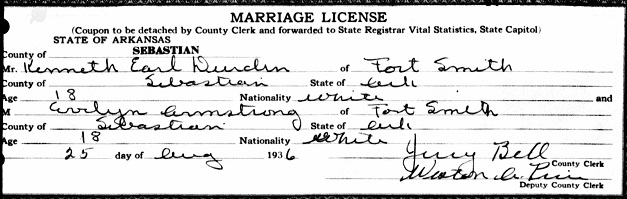 MARRIAGE LICENSE
(Coupon to be detached by County Clerk and forwarded to State Registrar Vital Statistics, State Capitol)
STATE OF ARKANSAS
County of SEBASTIAN
Mr. Kenneth Earl Durden of Fort Smith
County of Sebastian State of Ark
Age 18 Nationality White and
M Evelyn Armstrong of Fort Smith
County of Sebastian State of Ark
Age 18 Nationality White
25 day of Aug 1936 Bell County Clerk
Deputy County Clerk